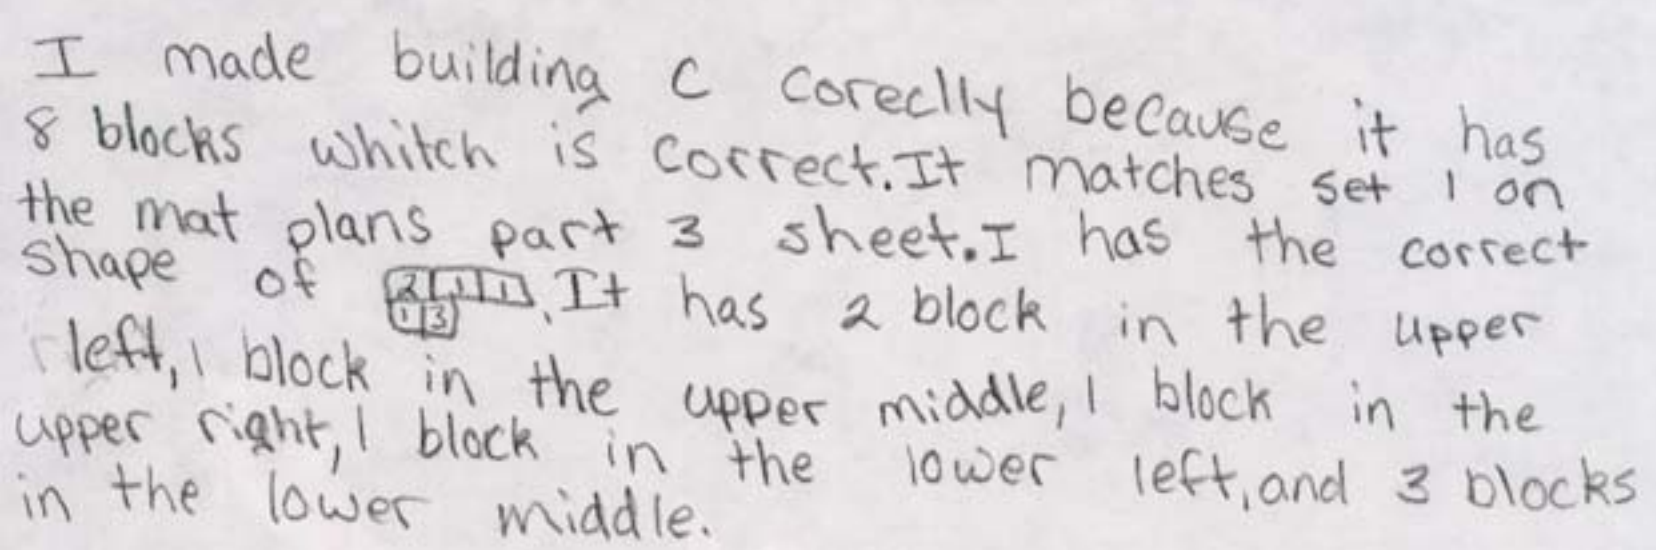 I made building C coreclly because it has
8 blocks whitch is correct. It matches set 1 on
the mat plans part 3 sheet. I has the correct
shape of 2 1 1 1 3. It has 2 block in the upper
left, 1 block in the upper middle, 1 block in the
upper right, 1 block in the lower left, and 3 blocks
in the lower middle.